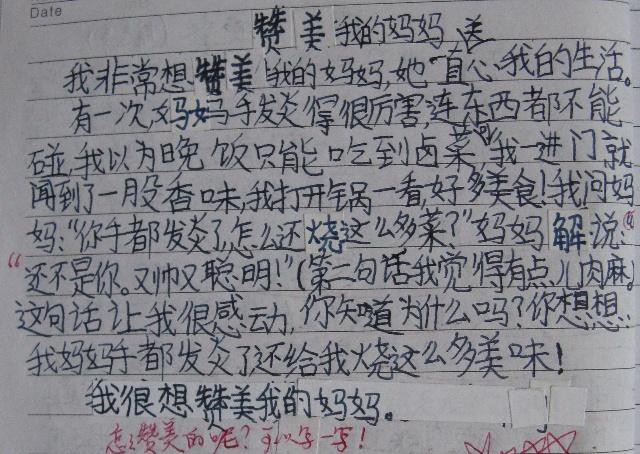 Date
赞美我的妈妈
我非常想赞美我的妈妈,她直心我的生活。
有一次,妈妈手发炎得很厉害,连东西都不能
碰,我以为晚饭只能吃到卤菜,我一进门就
闻到了一股香味,我打开锅一看,好多美食!我问妈
妈:“你手都发炎了,怎么还烧这么多菜?”妈妈解说:
“还不是你。又帅又聪明!”(第二句话我觉得有点儿肉麻)
这句话让我很感动,你知道为什么吗?你想想,
我妈妈手都发炎了还给我烧这么多美味!
我很想赞美我的妈妈。
怎么赞美的呢?可以写一写!